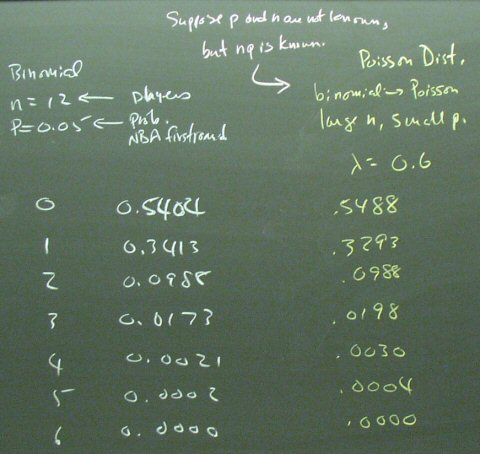 Suppose p and n are not known,
but nq is known.
Binomial
n = 12 ← players
P = 0.05 ← Prob. NBA first round
Poisson Dist.
binomial → Poisson
large n, small p.
λ = 0.6
0 0.5404 .5488
1 0.3413 .3293
2 0.0988 .0988
3 0.0173 .0198
4 0.0021 .0030
5 0.0002 .0004
6 0.0000 .0000